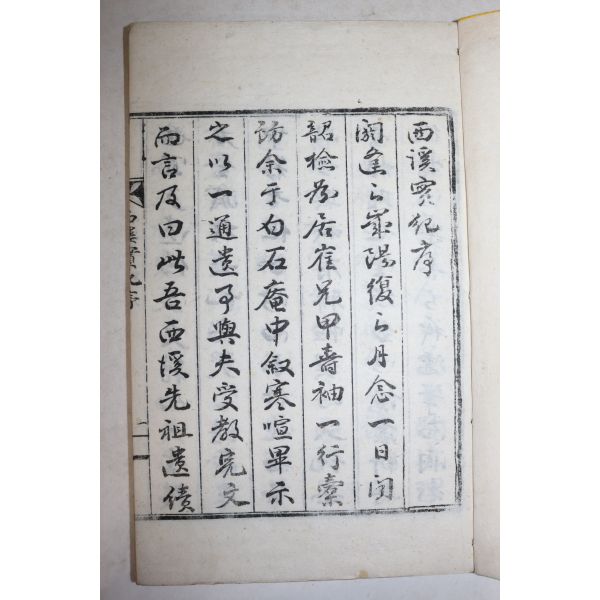 西溪實紀序
閼逢之歲陽復之月念一日閒
韶檢蕘居崔兄甲壽袖一行橐
訪余于白石庵中敍寒暄畢示
之以一通遺事與夫受教完文
而言及曰此吾西溪先祖遺績
西溪實紀序